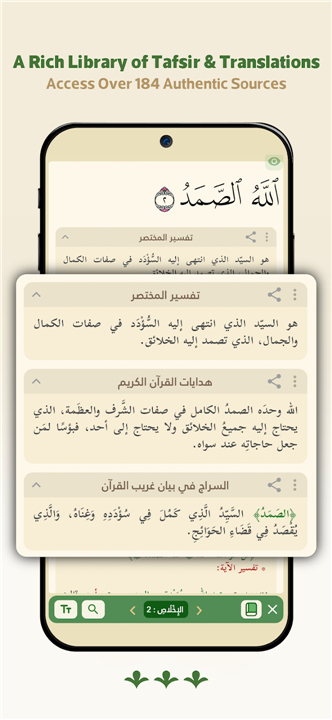 A Rich Library of Tafsir & Translations
Access Over 184 Authentic Sources
ٱللَّهُ ٱلصَّمَدُ ٢
تفسير المختصر
هو السيّد الذي انتهى إليه السُّؤْدَد في صفات الكمال
والجمال، الذي تصمد إليه الخلائق.
تفسير المختصر
هو السيّد الذي انتهى إليه السُّؤْدَد في صفات الكمال
والجمال، الذي تصمد إليه الخلائق.
هدايات القرآن الكريم
الله وحدَه الصمدُ الكامل في صفات الشَّرف والعظَمة، الذي
يحتاج إليه جميعُ الخلائق ولا يحتاج إلى أحد، فبؤسًا لمَن
جعل حاجاتِه عند سواه.
السراج في بيان غريب القرآن
﴿الصَّمَدُ﴾ السَّيِّدُ الَّذِي كَمُلَ فِي سُؤْدَدِهِ وَغِنَاهُ، وَالَّذِي
يُقْصَدُ فِي قَضَاءِ الحَوَائِجِ.
* تفسير الآية:
Tт
الإخلاص : 2